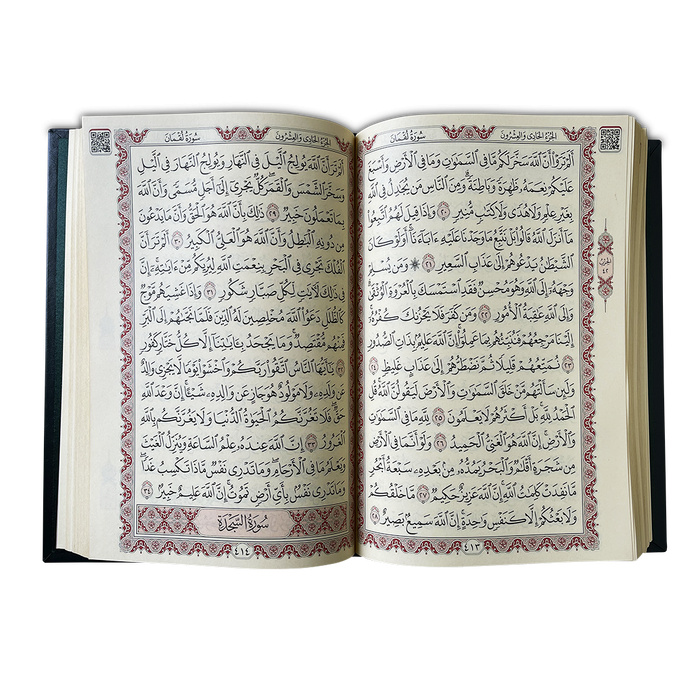 سُورَةُ لُقْمَانَ الجُزْءُ الحَادِي وَالعِشْرُونَ
أَلَمْ تَرَوْا۟ أَنَّ ٱللَّهَ سَخَّرَ لَكُم مَّا فِى ٱلسَّمَـٰوَٰتِ وَمَا فِى ٱلْأَرْضِ وَأَسْبَغَ
عَلَيْكُمْ نِعَمَهُۥ ظَـٰهِرَةً وَبَاطِنَةً ۗ وَمِنَ ٱلنَّاسِ مَن يُجَـٰدِلُ فِى ٱللَّهِ
بِغَيْرِ عِلْمٍ وَلَا هُدًى وَلَا كِتَـٰبٍ مُّنِيرٍ ٢٠ وَإِذَا قِيلَ لَهُمُ ٱتَّبِعُوا۟
مَآ أَنزَلَ ٱللَّهُ قَالُوا۟ بَلْ نَتَّبِعُ مَا وَجَدْنَا عَلَيْهِ ءَابَآءَنَآ ۚ أَوَلَوْ كَانَ
ٱلشَّيْطَـٰنُ يَدْعُوهُمْ إِلَىٰ عَذَابِ ٱلسَّعِيرِ ٢١ ۞ وَمَن يُسْلِمْ
وَجْهَهُۥٓ إِلَى ٱللَّهِ وَهُوَ مُحْسِنٌ فَقَدِ ٱسْتَمْسَكَ بِٱلْعُرْوَةِ ٱلْوُثْقَىٰ ۗ
وَإِلَى ٱللَّهِ عَـٰقِبَةُ ٱلْأُمُورِ ٢٢ وَمَن كَفَرَ فَلَا يَحْزُنكَ كُفْرُهُۥٓ ۚ
إِلَيْنَا مَرْجِعُهُمْ فَنُنَبِّئُهُم بِمَا عَمِلُوٓا۟ ۚ إِنَّ ٱللَّهَ عَلِيمٌۢ بِذَاتِ ٱلصُّدُورِ
٢٣ نُمَتِّعُهُمْ قَلِيلًا ثُمَّ نَضْطَرُّهُمْ إِلَىٰ عَذَابٍ غَلِيظٍ ٢٤
وَلَئِن سَأَلْتَهُم مَّنْ خَلَقَ ٱلسَّمَـٰوَٰتِ وَٱلْأَرْضَ لَيَقُولُنَّ ٱللَّهُ ۚ قُلِ
ٱلْحَمْدُ لِلَّهِ ۚ بَلْ أَكْثَرُهُمْ لَا يَعْلَمُونَ ٢٥ لِلَّهِ مَا فِى ٱلسَّمَـٰوَٰتِ
وَٱلْأَرْضِ ۚ إِنَّ ٱللَّهَ هُوَ ٱلْغَنِىُّ ٱلْحَمِيدُ ٢٦ وَلَوْ أَنَّمَا فِى ٱلْأَرْضِ
مِن شَجَرَةٍ أَقْلَـٰمٌ وَٱلْبَحْرُ يَمُدُّهُۥ مِنۢ بَعْدِهِۦ سَبْعَةُ أَبْحُرٍ
مَّا نَفِدَتْ كَلِمَـٰتُ ٱللَّهِ ۗ إِنَّ ٱللَّهَ عَزِيزٌ حَكِيمٌ ٢٧ مَّا خَلْقُكُمْ
وَلَا بَعْثُكُمْ إِلَّا كَنَفْسٍ وَٰحِدَةٍ ۗ إِنَّ ٱللَّهَ سَمِيعٌۢ بَصِيرٌ ٢٨
الحزب
٤٢
٤١٣
سُورَةُ لُقْمَانَ الجُزْءُ الحَادِي وَالعِشْرُونَ
أَلَمْ تَرَ أَنَّ ٱللَّهَ يُولِجُ ٱلَّيْلَ فِى ٱلنَّهَارِ وَيُولِجُ ٱلنَّهَارَ فِى ٱلَّيْلِ
وَسَخَّرَ ٱلشَّمْسَ وَٱلْقَمَرَ كُلٌّ يَجْرِىٓ إِلَىٰٓ أَجَلٍ مُّسَمًّى وَأَنَّ ٱللَّهَ
بِمَا تَعْمَلُونَ خَبِيرٌ ٢٩ ذَٰلِكَ بِأَنَّ ٱللَّهَ هُوَ ٱلْحَقُّ وَأَنَّ مَا يَدْعُونَ
مِن دُونِهِ ٱلْبَـٰطِلُ وَأَنَّ ٱللَّهَ هُوَ ٱلْعَلِىُّ ٱلْكَبِيرُ ٣٠ أَلَمْ تَرَ أَنَّ
ٱلْفُلْكَ تَجْرِى فِى ٱلْبَحْرِ بِنِعْمَتِ ٱللَّهِ لِيُرِيَكُم مِّنْ ءَايَـٰتِهِۦٓ ۚ إِنَّ
فِى ذَٰلِكَ لَـَٔايَـٰتٍ لِّكُلِّ صَبَّارٍ شَكُورٍ ٣١ وَإِذَا غَشِيَهُم مَّوْجٌ
كَٱلظُّلَلِ دَعَوُا۟ ٱللَّهَ مُخْلِصِينَ لَهُ ٱلدِّينَ فَلَمَّا نَجَّىٰهُمْ إِلَى ٱلْبَرِّ
فَمِنْهُم مُّقْتَصِدٌ ۚ وَمَا يَجْحَدُ بِـَٔايَـٰتِنَآ إِلَّا كُلُّ خَتَّارٍ كَفُورٍ
٣٢ يَـٰٓأَيُّهَا ٱلنَّاسُ ٱتَّقُوا۟ رَبَّكُمْ وَٱخْشَوْا۟ يَوْمًا لَّا يَجْزِى وَالِدٌ
عَن وَلَدِهِۦ وَلَا مَوْلُودٌ هُوَ جَازٍ عَن وَالِدِهِۦ شَيْـًٔا ۚ إِنَّ وَعْدَ ٱللَّهِ
حَقٌّ ۖ فَلَا تَغُرَّنَّكُمُ ٱلْحَيَوٰةُ ٱلدُّنْيَا وَلَا يَغُرَّنَّكُم بِٱللَّهِ
ٱلْغَرُورُ ٣٣ إِنَّ ٱللَّهَ عِندَهُۥ عِلْمُ ٱلسَّاعَةِ وَيُنَزِّلُ ٱلْغَيْثَ
وَيَعْلَمُ مَا فِى ٱلْأَرْحَامِ ۖ وَمَا تَدْرِى نَفْسٌ مَّاذَا تَكْسِبُ غَدًا ۖ
وَمَا تَدْرِى نَفْسٌۢ بِأَىِّ أَرْضٍ تَمُوتُ ۚ إِنَّ ٱللَّهَ عَلِيمٌ خَبِيرٌۢ ٣٤
سُورَةُ السَّجْدَةِ
٤١٤